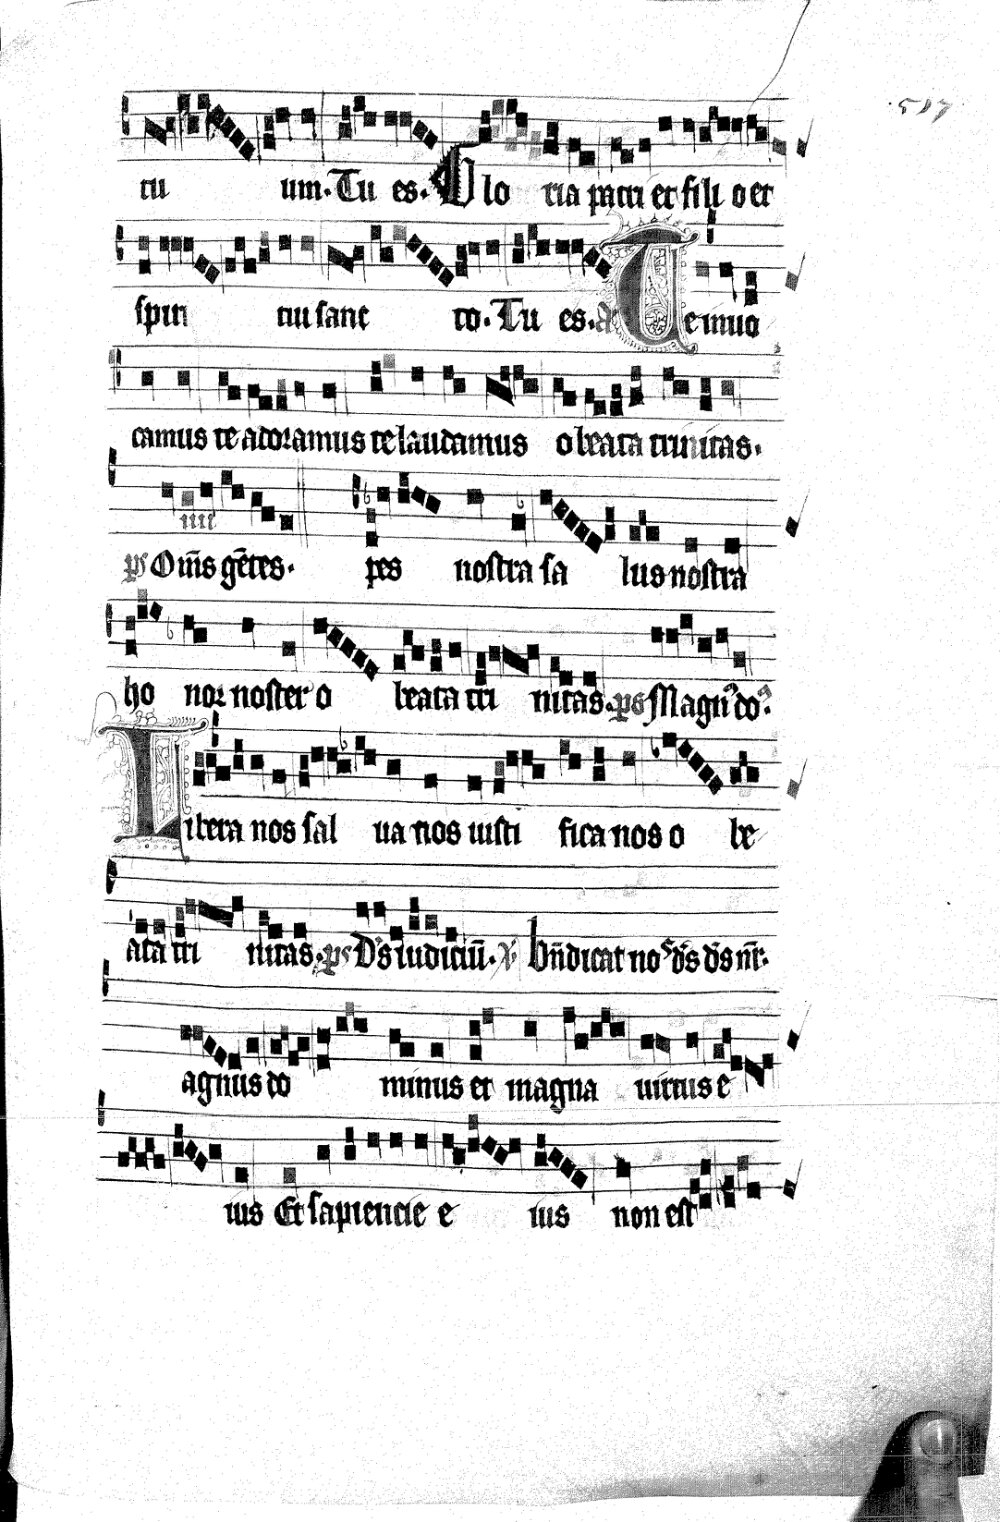 517
tu um. Tu es. Glo ria patri et fili o et
spiri tui sanc to. Tu es. a Te inuo
camus te adoramus te laudamus o beata trinitas.
ps Om̄s gētes. pes nostra sa lus nostra
ho nor noster o beata tri nitas. ps Magn9 do9.
Libera nos sal ua nos iusti fica nos o be
ata tri nitas. ps Ds iudiciū. V Bn̄dicat nos ds ds nr̄.
agnus do minus et magna uirtus e
ius Et sapiencie e ius non est